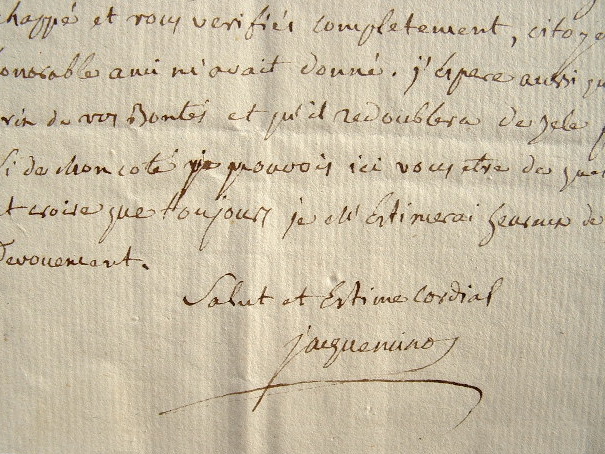 chappé et vous verifiés completement, citoye
onorable ami m'avait donné. j'Espere aussi qu
de vos Bontés et qu'il redoublera de zele p
Si de Mon coté je pouvois ici vous etre de que
et croire que toujours je M'Estimerai heureux de
Devouement.
Salut et Estime Cordial
jacqueminot